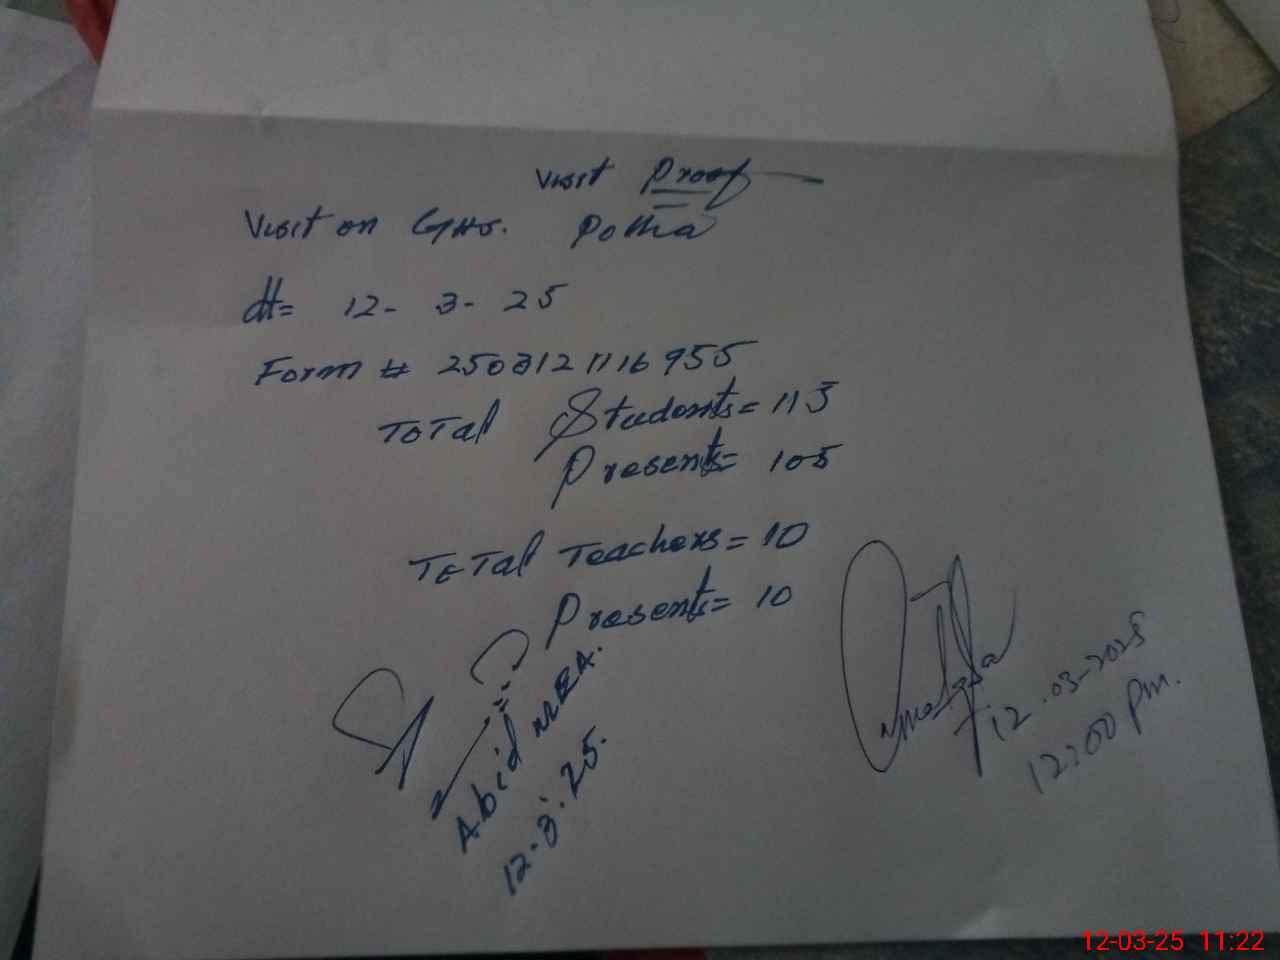 Visit Proof
Visit on GHS. Potha
dt= 12- 3- 25
Form # 2503121116955
Total Students = 113
Presents = 105
Total Teachers = 10
Presents = 10
Abid MEA.
12-3-25.
12-03-2025
12:00 Pm.
12-03-25 11:22